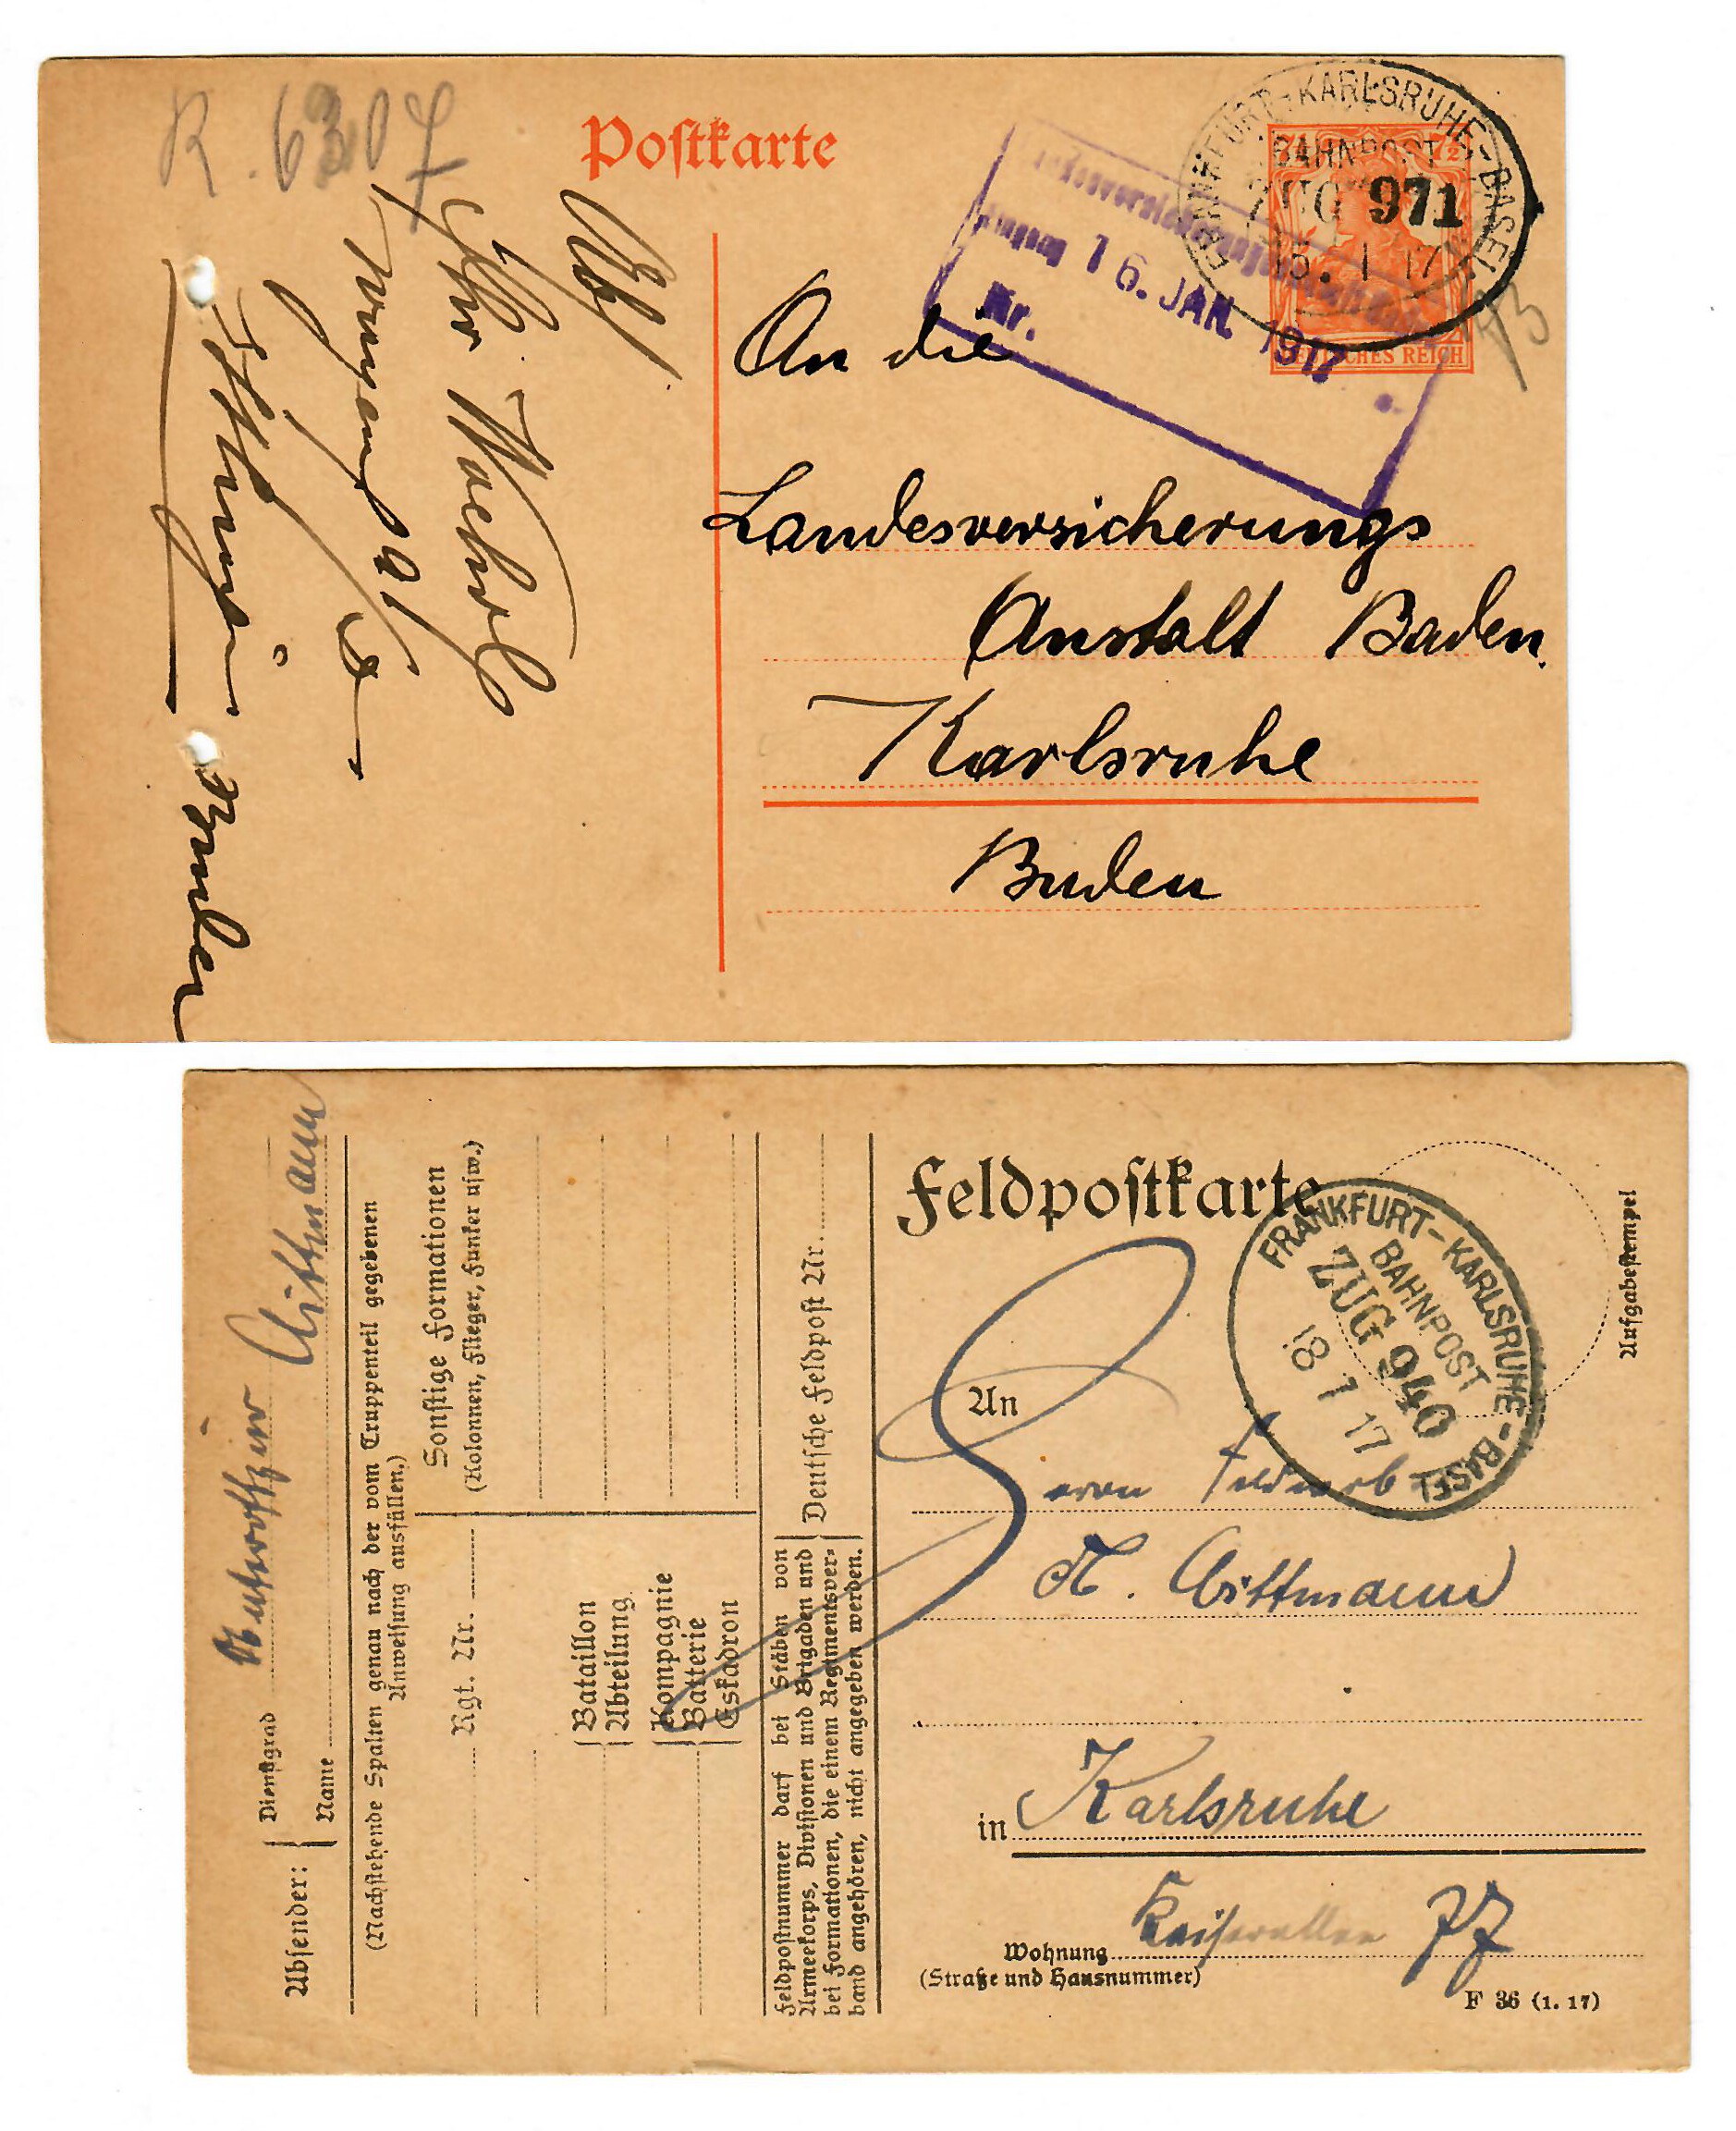 R. 6307
Postkarte
FRANKFURT-KARLSRUHE-BASEL
BAHNPOST
ZUG 971
15. 1 17
7½
DEUTSCHES REICH
Eingang 16. JAN. 1917
Nr.
An die
Landesversicherungs
Anstalt Baden.
Karlsruhe
Baden
Abs/
Feldpoſtkarte
FRANKFURT-KARLSRUHE-BASEL
BAHNPOST
ZUG 940
18 7 17
Aufgabeſtempel
An
Herrn Feldweb
Wittmann
in Karlsruhe
Wohnung Kaiserallee
(Straße und Hausnummer)
F 36 (1. 17)
Abſender:
Dienſtgrad Unteroffizier
Name Wittmann
(Nachſtehende Spalten genau nach der vom Truppenteil gegebenen
Anweiſung ausfüllen.)
Rgt. Nr.
Sonſtige Formationen
(Kolonnen, Flieger, Funker uſw.)
Bataillon
Abteilung
Kompagnie
Batterie
Eskadron
Feldpoſtnummer darf bei Stäben von
Armeekorps, Diviſionen und Brigaden und
bei Formationen, die einem Regimentsver-
band angehören, nicht angegeben werden.
Deutſche Feldpoſt Nr.